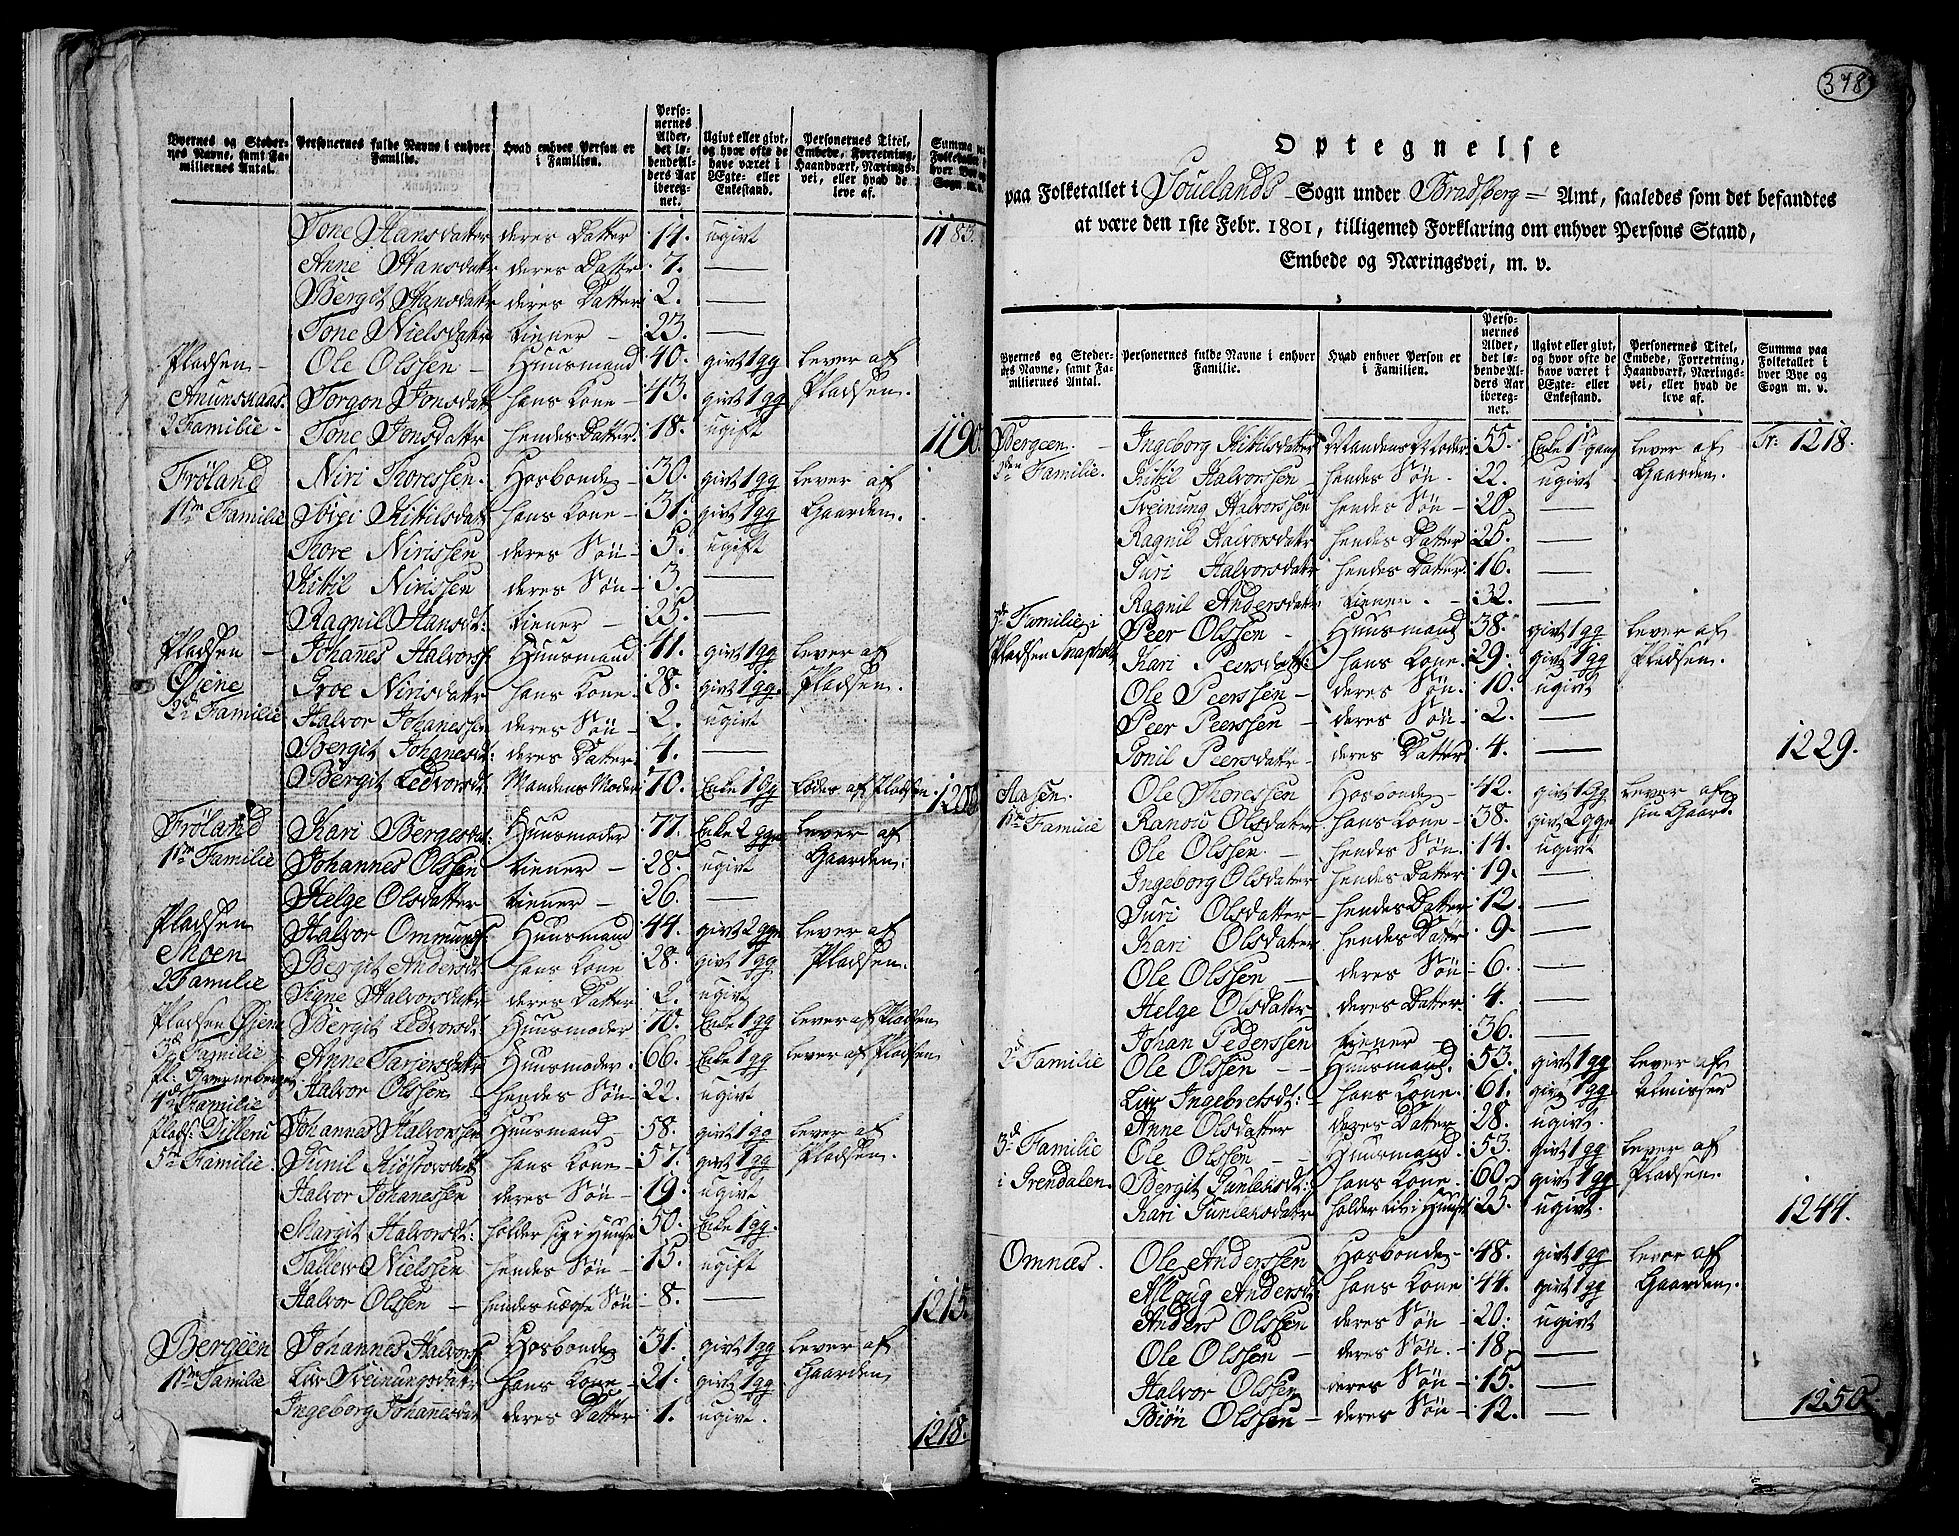 Byernes og Stedernes Navne, samt Familiernes Antal. | Personernes fulde Navne i enhver Familie. | Hvad enhver Person er i Familien. | Personernes Alder, det løbende Alders Aar iberegnet. | Ugivt eller givt, og hvor ofte de have været i Ægte- eller Enkestand. | Personernes Titel, Embede, Forretning, Haandværk, Næringsvei, eller hvad de leve af. | Summa paa Folketallet i hver Bye og Sogn m. v.
Tone Hansdatter deres Datter 14. ugivt 1183.
Anne Hansdattr deres Dattr 7. —
Bergit Hansdattr deres Datter 2. —
Tone Nielsdattr tiener — 23. —
Pladsen — Ole Olssen — Huusmand 40. givt 1 gg lever af
Anunskaas. Torgon Jonsdatr hans Kone — 43. givt 1 gg Pladsen.
2 Familie — Tone Jonsdattr hendes Datter. 18. ugift 1190.
Frøland Niri Thoressen. Hosbonde — 30. givt 1 gg lever af
1ste Familie Kittilsdatr hans Kone — 31. givt 1 gg Gaarden.
Thore Nirissen deres Søn — 5. ugift
Kittil Nirissen deres Søn — 3. —
Ragnil Hansdt: tiener — 25. —
Pladsen — Johanes Halvorss Huusmand 41. givt 1 gg lever af
Øiene Groe Nirisdattr hans Kone — 28. givt 1 gg. Pladsen.
2d Familie Halvor Johanessen deres Søn — 2. ugivt
Bergit Johanesdt: deres Datter 4. —
Bergit Ledvorsdt: Mandens Moder 70. Enke 1 gg Lødes af Pladsen. 1200
Frøland Kari Bergesdat: Huusmoder 77. Enke 2 gge lever af
1ste Familie Johannes Olssen tiener — 28. ugivt Gaarden.
Helge Olsdatter tiener — 26. —
Pladsen Halvor Ommunds Huusmand 44. givt 2 gge lever af
Moen Bergit Andersdt: hans Kone 28. givt 1 gg Pladsen.
2 Familie Signe Halvorsdatr deres Datter 2. ugivt
Pladsen Øiene Bergit Ledvorsdt: Huusmoder 70. Enke 1 gg lever af Pladsen
3d Familie Anne Tarjersdatr Huusmoder. 66. Enke 1 gg lever af Pladsen
Pl. Qverneberget Halvor Olssen — hendes Søn — 22. ugivt
4de Familie
Plads: Dillerü Johannes Halvorssen Huusmand — 58. givt 1 gg lever af
5te Familie. Gunil hans Kone — 57. givt 1 gg Pladsen.
Halvor Johanessen deres Søn — 19. ugivt
Margit Halvorsdt: holder sig i Huuse 50. Enke 1 gg.
Tallew Nielssen hendes Søn — 15. ugift
Halvor Olssen — hendes uægte Søn — 8. — 1215.
Bergeen Johannes Halvorss Hosbonde 31. givt 1 gg lever af
1ste Familie Liw Sveinungsdatr hans Kone — 21. givt 1 gg Gaarden
Ingeborg Johannesdat deres Datter 1. ugivt. 1218.
378
Optegnelse
paa Folketallet i Souelands Sogn under Bradsberg = Amt, saaledes som det befandtes
at være den 1ste Febr. 1801, tilligemed Forklaring om enhver Persons Stand,
Embede og Næringsvei, m. v.
Byernes og Stedernes Navne, samt Familiernes Antal. | Personernes fulde Navne i enhver Familie. | Hvad enhver Person er i Familien. | Personernes Alder, det løbende Alders Aar iberegnet. | Ugivt eller givt, og hvor ofte de have været i Ægte- eller Enkestand. | Personernes Titel, Embede, Forretning, Haandværk, Næringsvei, eller hvad de leve af. | Summa paa Folketallet i hver Bye og Sogn m. v.
Bergeen. — Ingeborg Kittilsdater Mandens Moder 55. Enke 1ste gang lever af Tr: 1218.
2den Familie. Kittil Halvorssen — hendes Søn. 22. ugivt Gaarden.
Sveinung Halvorssen hendes Søn — 20. —
Ragnil Halvorsdatr hendes Datter 25. —
Guri Halvorsdatr hendes Datter. 16. —
Ragnil Andersdatr tiener. — 32. —
3de Familie i Peer Olssen — Huusmand 38. givt 1 gg lever af
Pladsen Kari Peersdattr: hans Kone. 29. givt 1 gg Pladsen.
Ole Peerssen — deres Søn. 10. ugivt
Peer Peerssen — deres Søn — 2. —
Gonil Peersdatr — deres Datter 4. — 1229.
Aasen. Ole Thoressen Hosbonde — 42. givt 1 gg lever af
1ste Familie Ranou Olsdatr hans Kone — 38. givt 2 gge sin Gaard.
Ole Olssen. — hendes Søn. 14. ugivt
Ingeborg Olsdater hendes Datter 19. —
Guri Olsdatter — hendes Datter 12. —
Kari Olsdater hendes Datr 9 —
Ole Olssen — deres Søn 6. —
Helge Olsdatter deres Datter. 4. —
Johan Pederssen tiener — 36. —
2d Familie Ole Olssen — Huusmand. 53. givt 1 gg lever af
Liw Ingebretsdt: hans Kone. 61. givt 1 gg. Almisser
Anne Olsdatter deres Datter 28. ugivt.
3d Familie Ole Olssen — Huusmand. 53. givt 1 gg lever af
i Grendalen. Bergit Gunleksdt: hans Kone. 60. givt 1 gg Pladsen.
Kari Gunleksdatr holder til i Huuset 25. ugivt. 1244.
Omnæs. Ole Anderssen Hosbonde — 48. givt 1 gg lever af
Asloug Andersdt hans Kone 44. givt 1 gg Gaarden.
Anders Olssen deres Søn — 20. ugivt
Ole Olssen — deres Søn. — 18. —
Halvor Olssen deres Søn — 15. —
Biøn Olssen — deres Søn — 12. — 1250